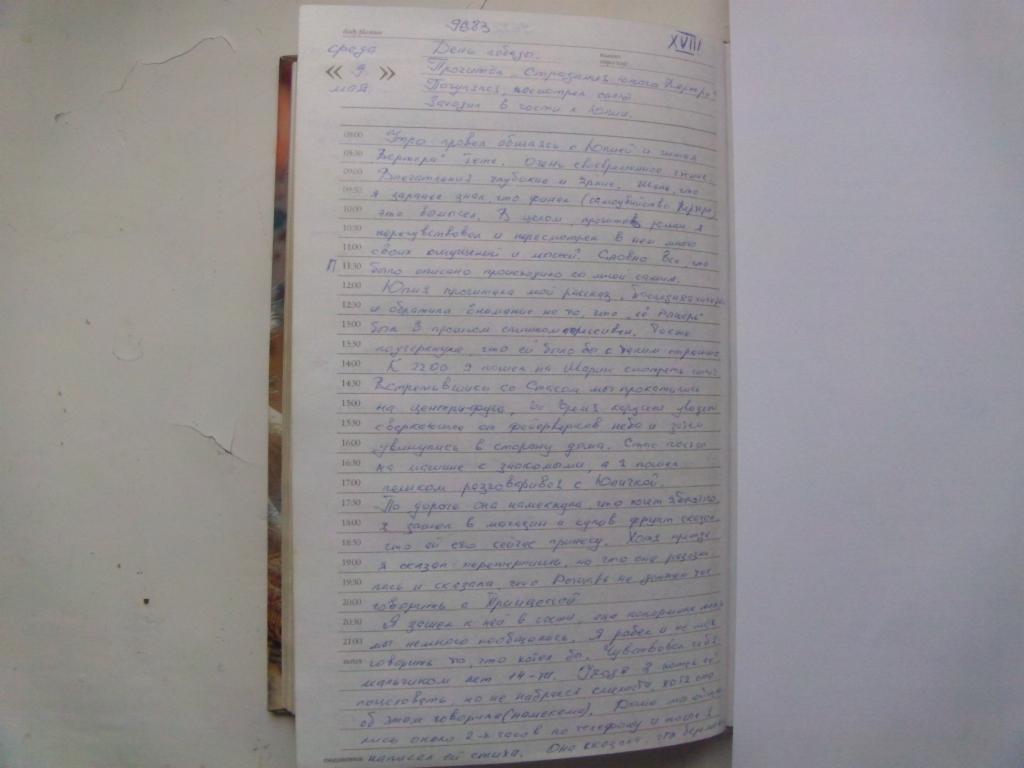 9683
XVIII
среда
День победы.
« 9 »
Прочитал „Страдания юного Вертера"
мая
Погулял, посмотрел салют
Заходил в гости к Юлии.
08:00 Утро провел общаясь с Юлией и читая
08:30 „Вертера" Гете. Очень своевременное чтение.
09:00 Впечатления глубокие и яркие. Жаль, что
09:30 я заранее знал, что финал (самоубийство Вертера)
10:00 это вымысел. В целом, прочитав роман я
10:30 перечувствовал и пересмотрел в нем много
11:00 своих ощущений и мыслей. Словно все, что
П 11:30 было описано происходило со мной самим.
12:00 Юлия прочитала мой рассказ
12:30 и обратила внимание на то, что „её рыцарь"
13:00 был в прошлом слишком агрессивен. Также
13:30 подчеркнула, что ей было бы с таким страшно
14:00 К 22:00 я пошел на смотреть салют
14:30 Встретившись со Стасом мы прокатились
15:00 на центрифуге, во время карусели увидел
15:30 сверкающее от фейерверков небо и затем
16:00 двинулись в сторону дома. Стас поехал
16:30 на машине с знакомыми, а я пошел
17:00 пешком разговаривая с Юлечкой.
17:30 По дороге она намекнула, что хочет яблоко,
18:00 я зашел в магазин и купив фрукт сказал
18:30 что ей его сейчас принесу. Хотя прежде
19:00 я сказал перетерпишь, на что она разозли-
19:30 лась и сказала, что Рыцарь не должен так
20:00 говорить с Принцессой
20:30 Я зашел к ней в гости, она накормила меня
21:00 мы немного пообщались. Я робел и не мог
говорить то, что хотел бы. Чувствовал себя
мальчиком лет 14-ти. Уходя я хотел её
поцеловать, но не набрался смелости, хотя она
об этом говорила (намеками). Дома мы обща-
лись около 2-х часов по телефону и после я
написал ей стихи. Она сказала, что